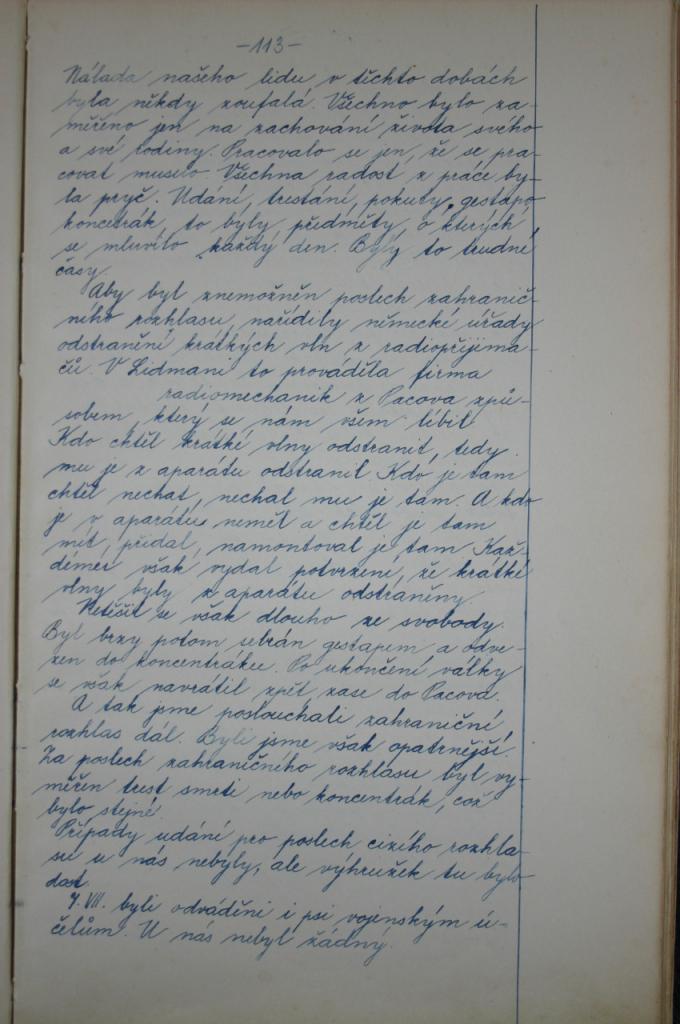 -113-
Nálada našeho lidu v těchto dobách
byla někdy zoufalá. Všechno bylo za-
měřeno jen na zachování života svého
a své rodiny. Pracovalo se jen, že se pra-
covat muselo. Všechna radost z práce by-
la pryč. Udání, trestání, pokuty, gestapo
koncetrák, to byly předměty, o kterých
se mluvilo každý den. Byly to trudné
časy.
Aby byl znemožněn poslech zahranič-
ního rozhlasu, nařídily německé úřady
odstranění krátkých vln z radiopřijíma-
čů. V Lidmani to prováděla firma
radiomechanik z Pacova způ-
sobem, který se nám všem líbil.
Kdo chtěl krátké vlny odstranit, tedy
mu je z aparátu odstranil. Kdo je tam
chtěl nechat, nechal mu je tam. A kdo
je v aparátu neměl a chtěl je tam
mít, přidal, namontoval je tam. Kaž-
démeu však vydal potvrzení, že krátké
vlny byly z aparátu odstraněny.
Netěšil se však dlouho ze svobody.
Byl brzy potom sebrán gestapem a odve-
zen do koncentráku. Po ukončení války
se však navrátil zpět, zase do Pacova.
A tak jsme poslouchali zahraniční
rozhlas dál. Byli jsme však opatrnější.
Za poslech zahraničního rozhlasu byl vy-
měřen trest smrti nebo koncentrák, což
bylo stejné.
Případy udání pro poslech cizího rozhla-
su u nás nebyly, ale výhružek tu bylo
dost.
7. VII. byli odváděni i psi vojenským ú-
čelům. U nás nebyl žádný.